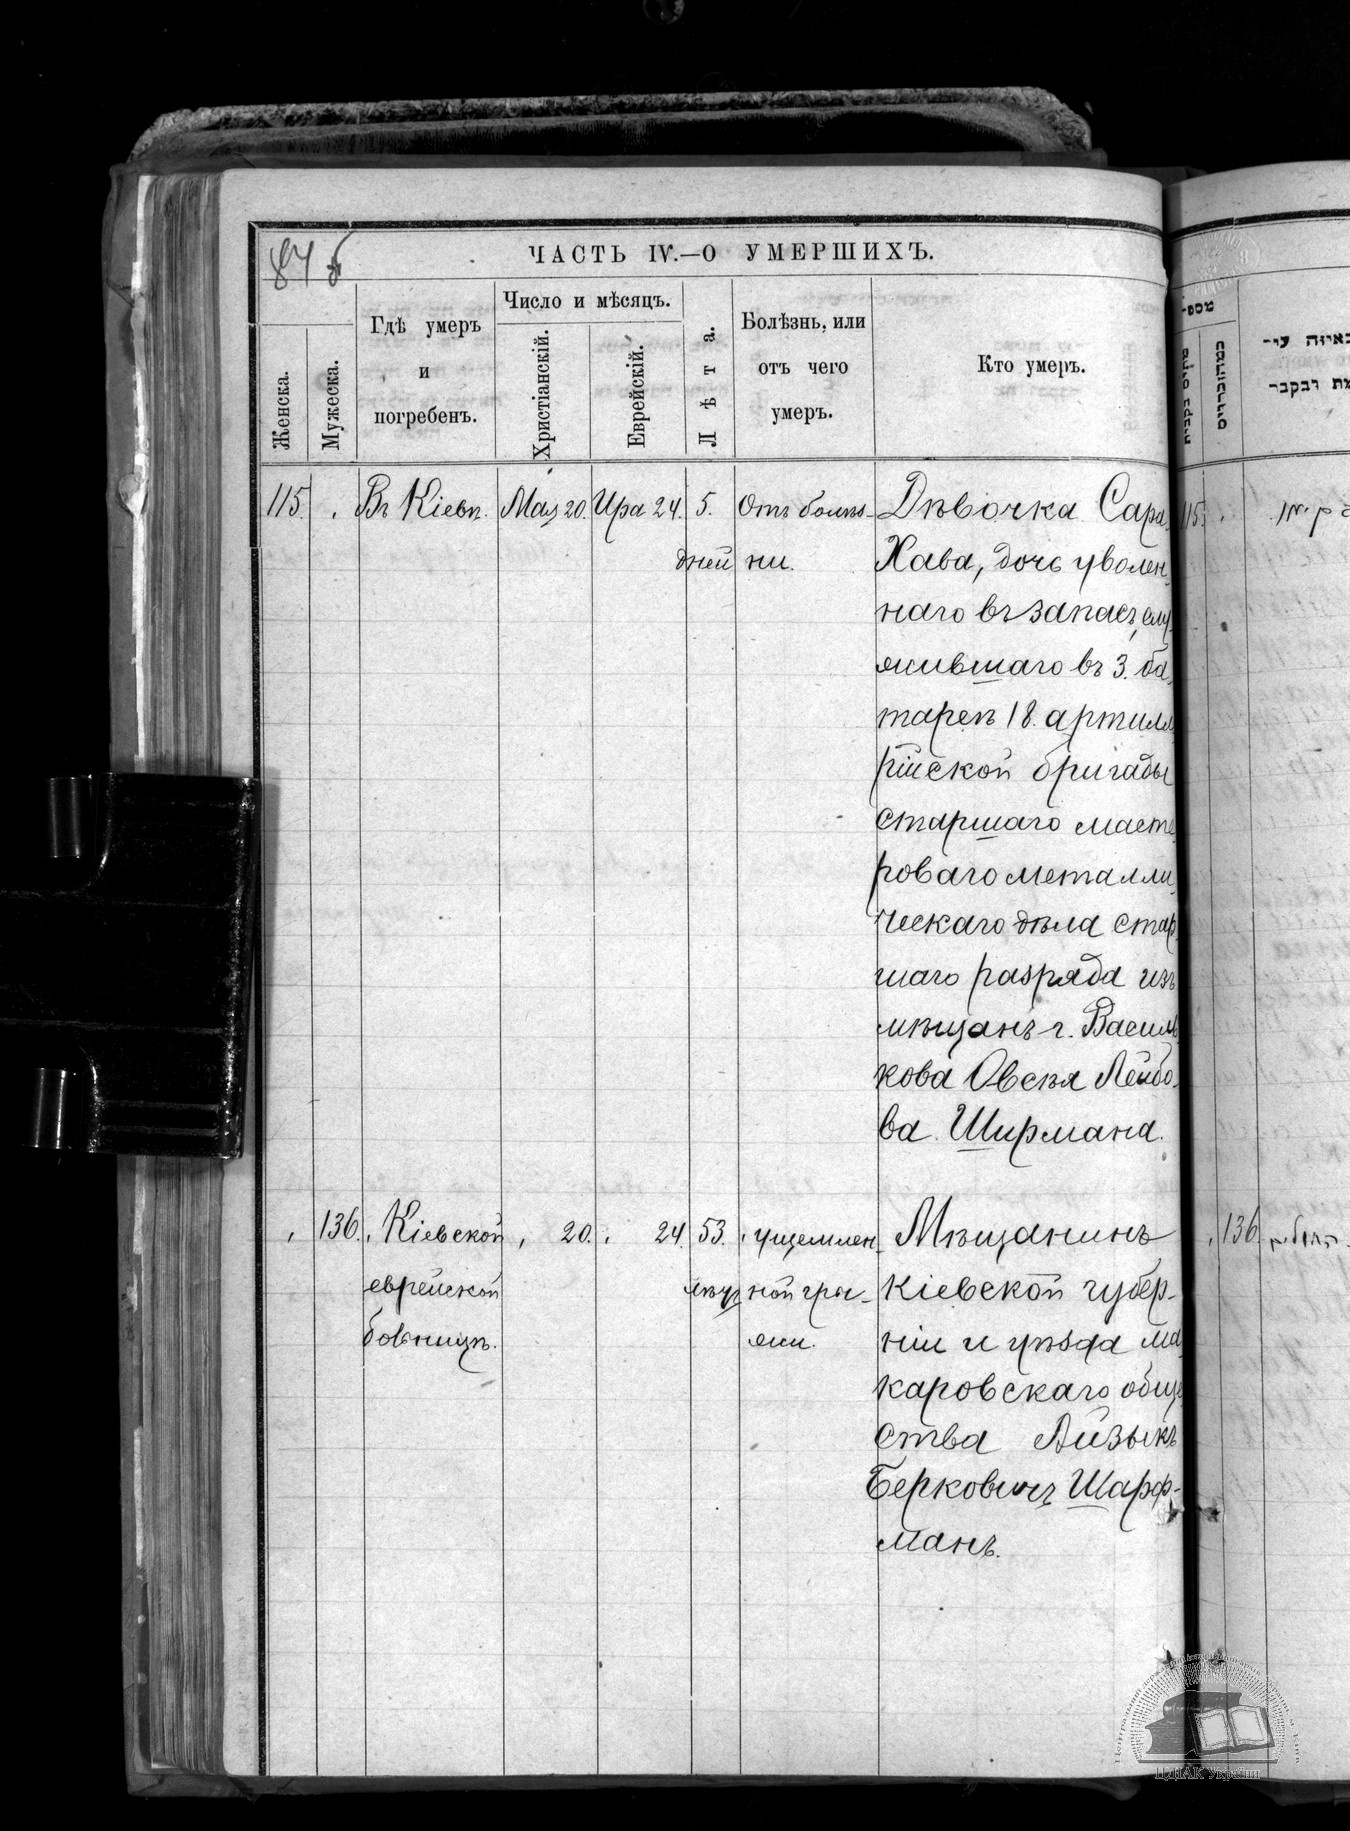 84 б
ЧАСТЬ IV.—О УМЕРШИХЪ.
Женска.
Мужеска.
Гдѣ умеръ
и
погребенъ.
Число и мѣсяцъ.
Христіанскій.
Еврейскій.
Лѣта.
Болѣзнь, или
отъ чего
умеръ.
Кто умеръ.
מספר
115. Въ Кіевѣ. Мая 20. Ира 24. 5. Отъ болѣз- Дѣвочка Сара
дней ни. Хава, дочь уволен-
наго въ запасъ, слу-
жившаго въ 3. ба-
тареѣ 18. артилле
рійской бригады
старшаго масте
роваго металли-
ческаго дѣла стар-
шаго разряда изъ
мѣщанъ г. Василь-
кова Овсѣя Лейбо-
ва Ширмана.
115
136. Кіевской 20. 24. 53. ущемлен- Мѣщанинъ
еврейской лѣтъ ной гры- Кіевской губер-
больницѣ. жи. ніи и уѣзда Ма-
каровскаго обще
ства Айзыкъ
Берковичъ Шарф-
манъ.
136
ЦДІАК України